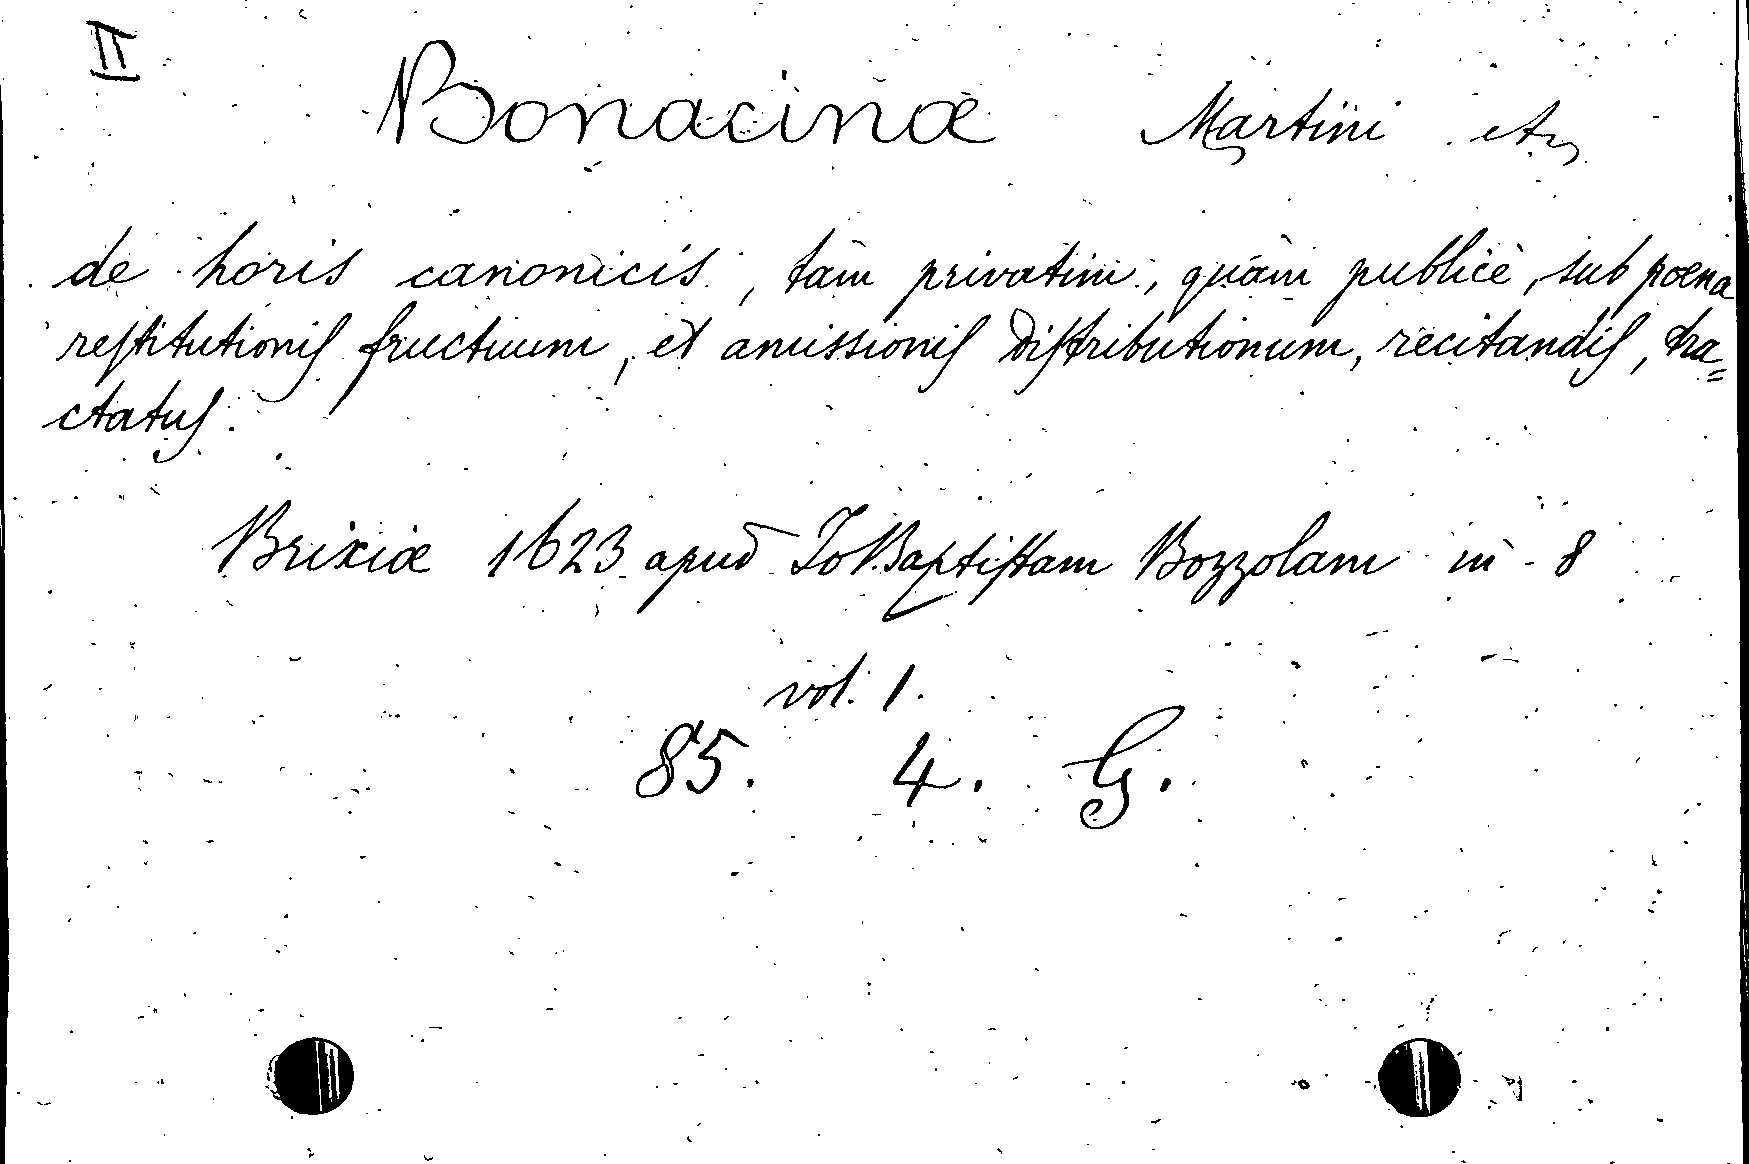 II
Bonacinæ Martini etc
de horis canonicis, tàm privatim, quàm publicè, sub poena
reſtitutionis fructuum, et amissionis diſtributionum, recitandis, tra=
ctatus.
Brixiæ 1623 apud Jo Baptiſtam Bozzolam in 8
vol. 1.
85. 4. G.